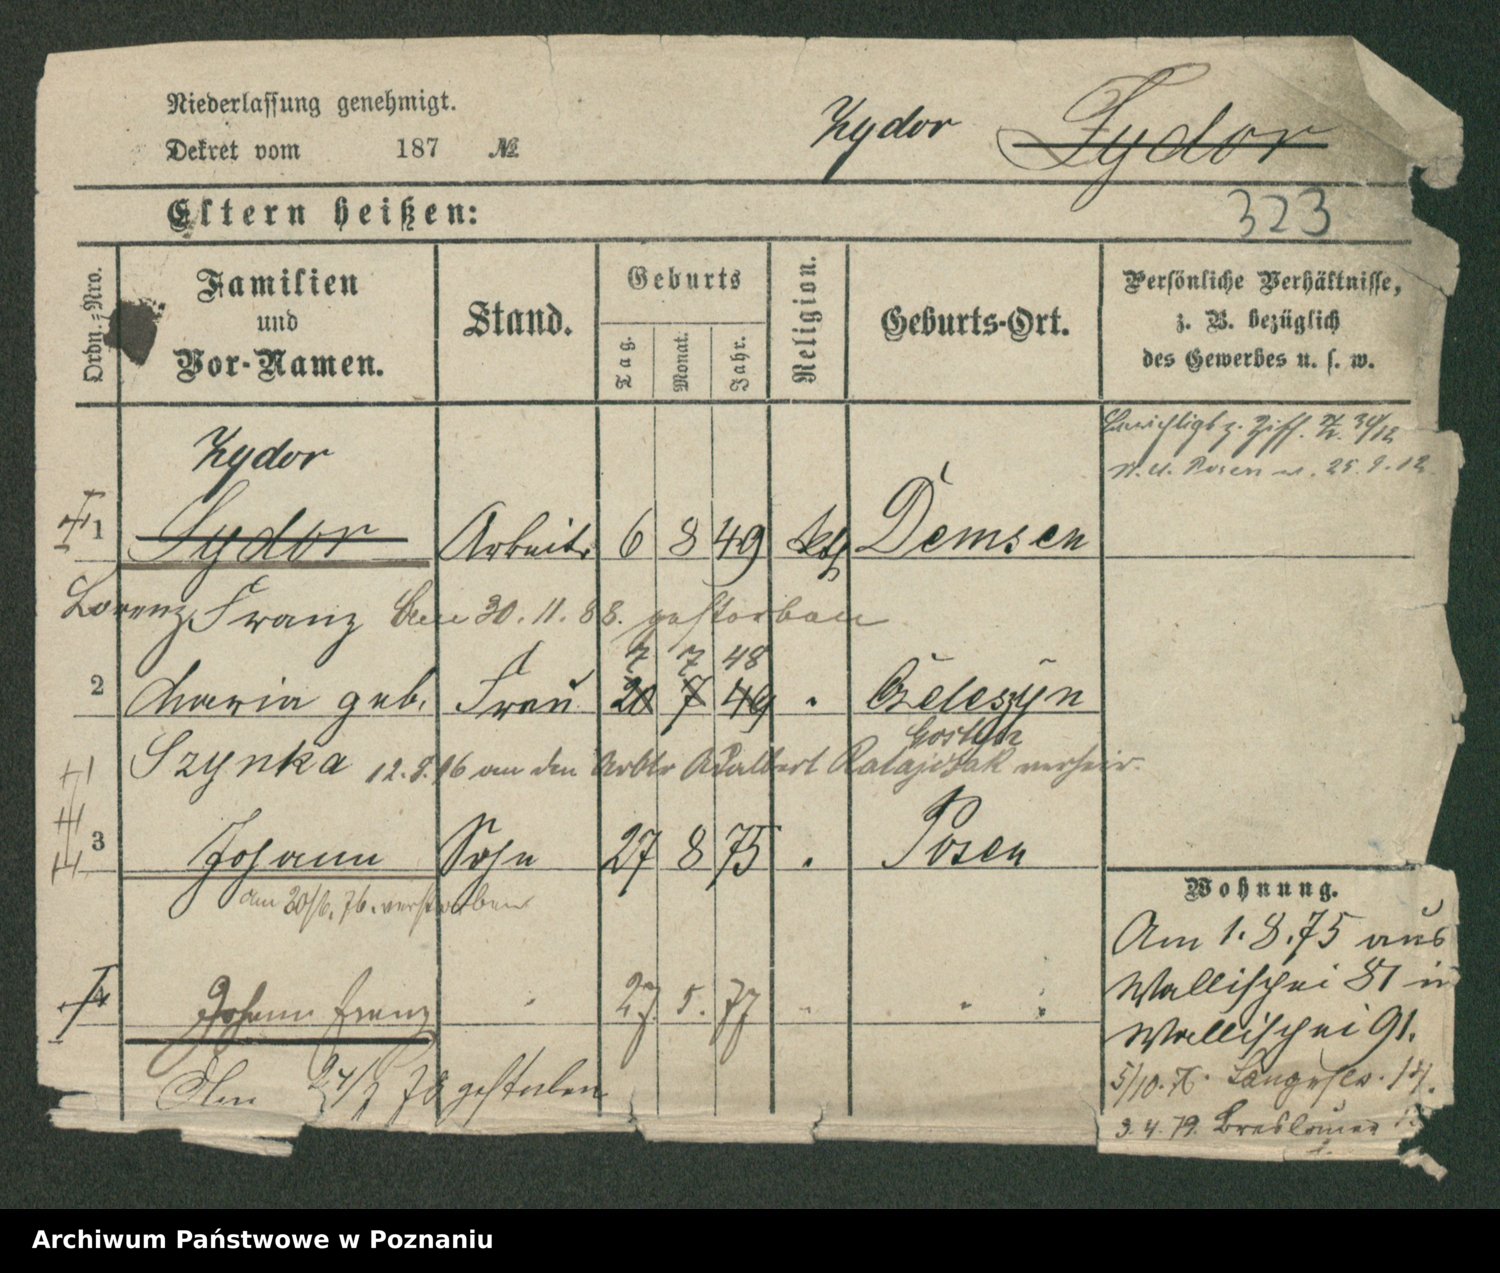 Niederlassung genehmigt.
Dekret vom 187 №
Zydor Zydor
Eltern heißen:
323
Ordn.-Nro.
Familien und Vor-Namen.
Stand.
Geburts
Tag. Monat. Jahr.
Religion.
Geburts-Ort.
Persönliche Verhältnisse, z. B. bezüglich des Gewerbes u. s. w.
Zydor
1 Zydor Arbeitr 6 8 49 kth Demsen
Lorenz Franz Am 30. 11. 88. gestorben
7 7 48
2 Maria geb. Frau 20 7 49 " Czeleszyn
Gostyn
Szynka 12.8.96 an den Arbtr Adalbert Ratajczak verheir.
3 Johann Sohn 27 8 75 " Posen
am 20/6. 76. verstorben
4 Johann Franz " 27 5. 77 " " "
Am 24/2 78 gestorben
Berichtigt z. Ziff.
25.9.12
Wohnung.
Am 1.8.75 aus
Wallischei 81 in
Wallischei 91.
5/10.76. Langestr.
3.4.79. Breslauer
Archiwum Państwowe w Poznaniu